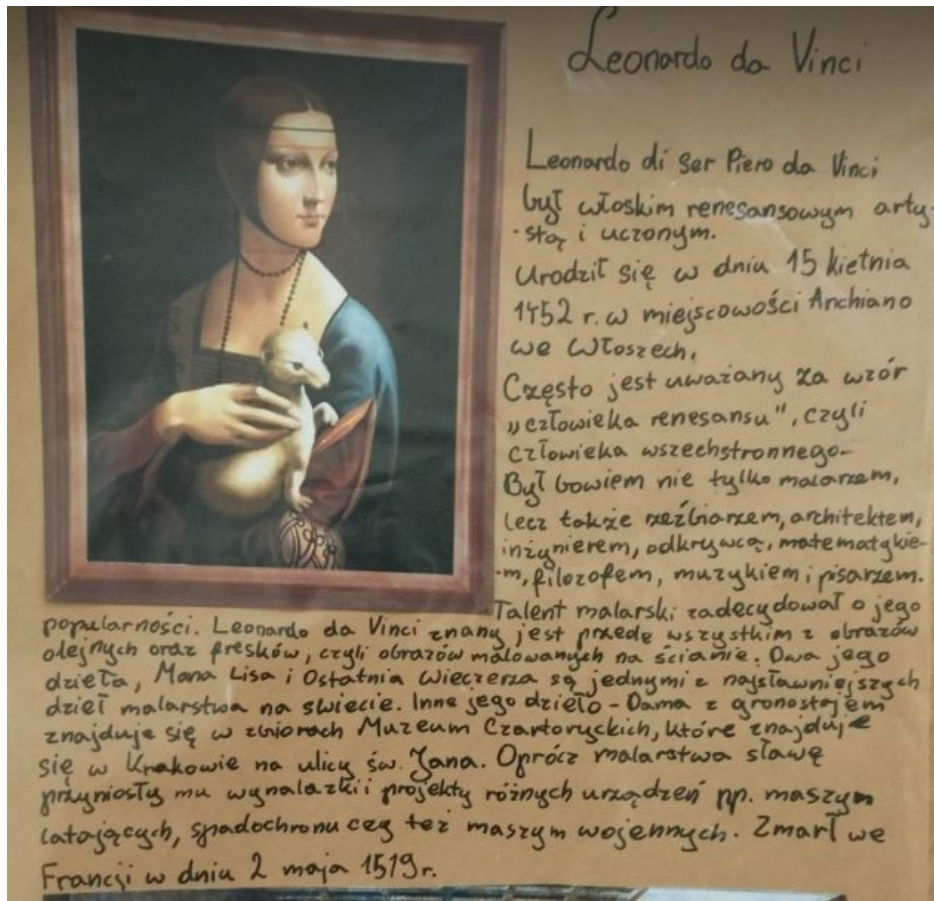 Leonardo da Vinci
Leonardo di Ser Piero da Vinci
był włoskim renesansowym arty-
-stą i uczonym.
Urodził się w dniu 15 kietnia
1452 r. w miejscowości Anchiano
we Włoszech.
Często jest uważany za wzór
„człowieka renesansu", czyli
człowieka wszechstronnego.
Był bowiem nie tylko malarzem,
lecz także rzeźbiarzem, architektem,
inżynierem, odkrywcą, matematykie-
-m, filozofem, muzykiem i pisarzem.
Talent malarski zadecydował o jego
popularności. Leonardo da Vinci znany jest przede wszystkim z obrazów
olejnych oraz fresków, czyli obrazów malowanych na ścianie. Dwa jego
dzieła, Mona Lisa i Ostatnia Wieczerza są jednymi z najsławniejszych
dzieł malarstwa na świecie. Inne jego dzieło - Dama z gronostajem
znajduje się w zbiorach Muzeum Czartoryckich, które znajduje
się w Krakowie na ulicy św. Jana. Oprócz malarstwa sławę
przyniosły mu wynalazki i projekty różnych urządzeń pp. maszym
latających, spadochronu czy też maszym wojennych. Zmarł we
Francji w dniu 2 maja 1519 r.